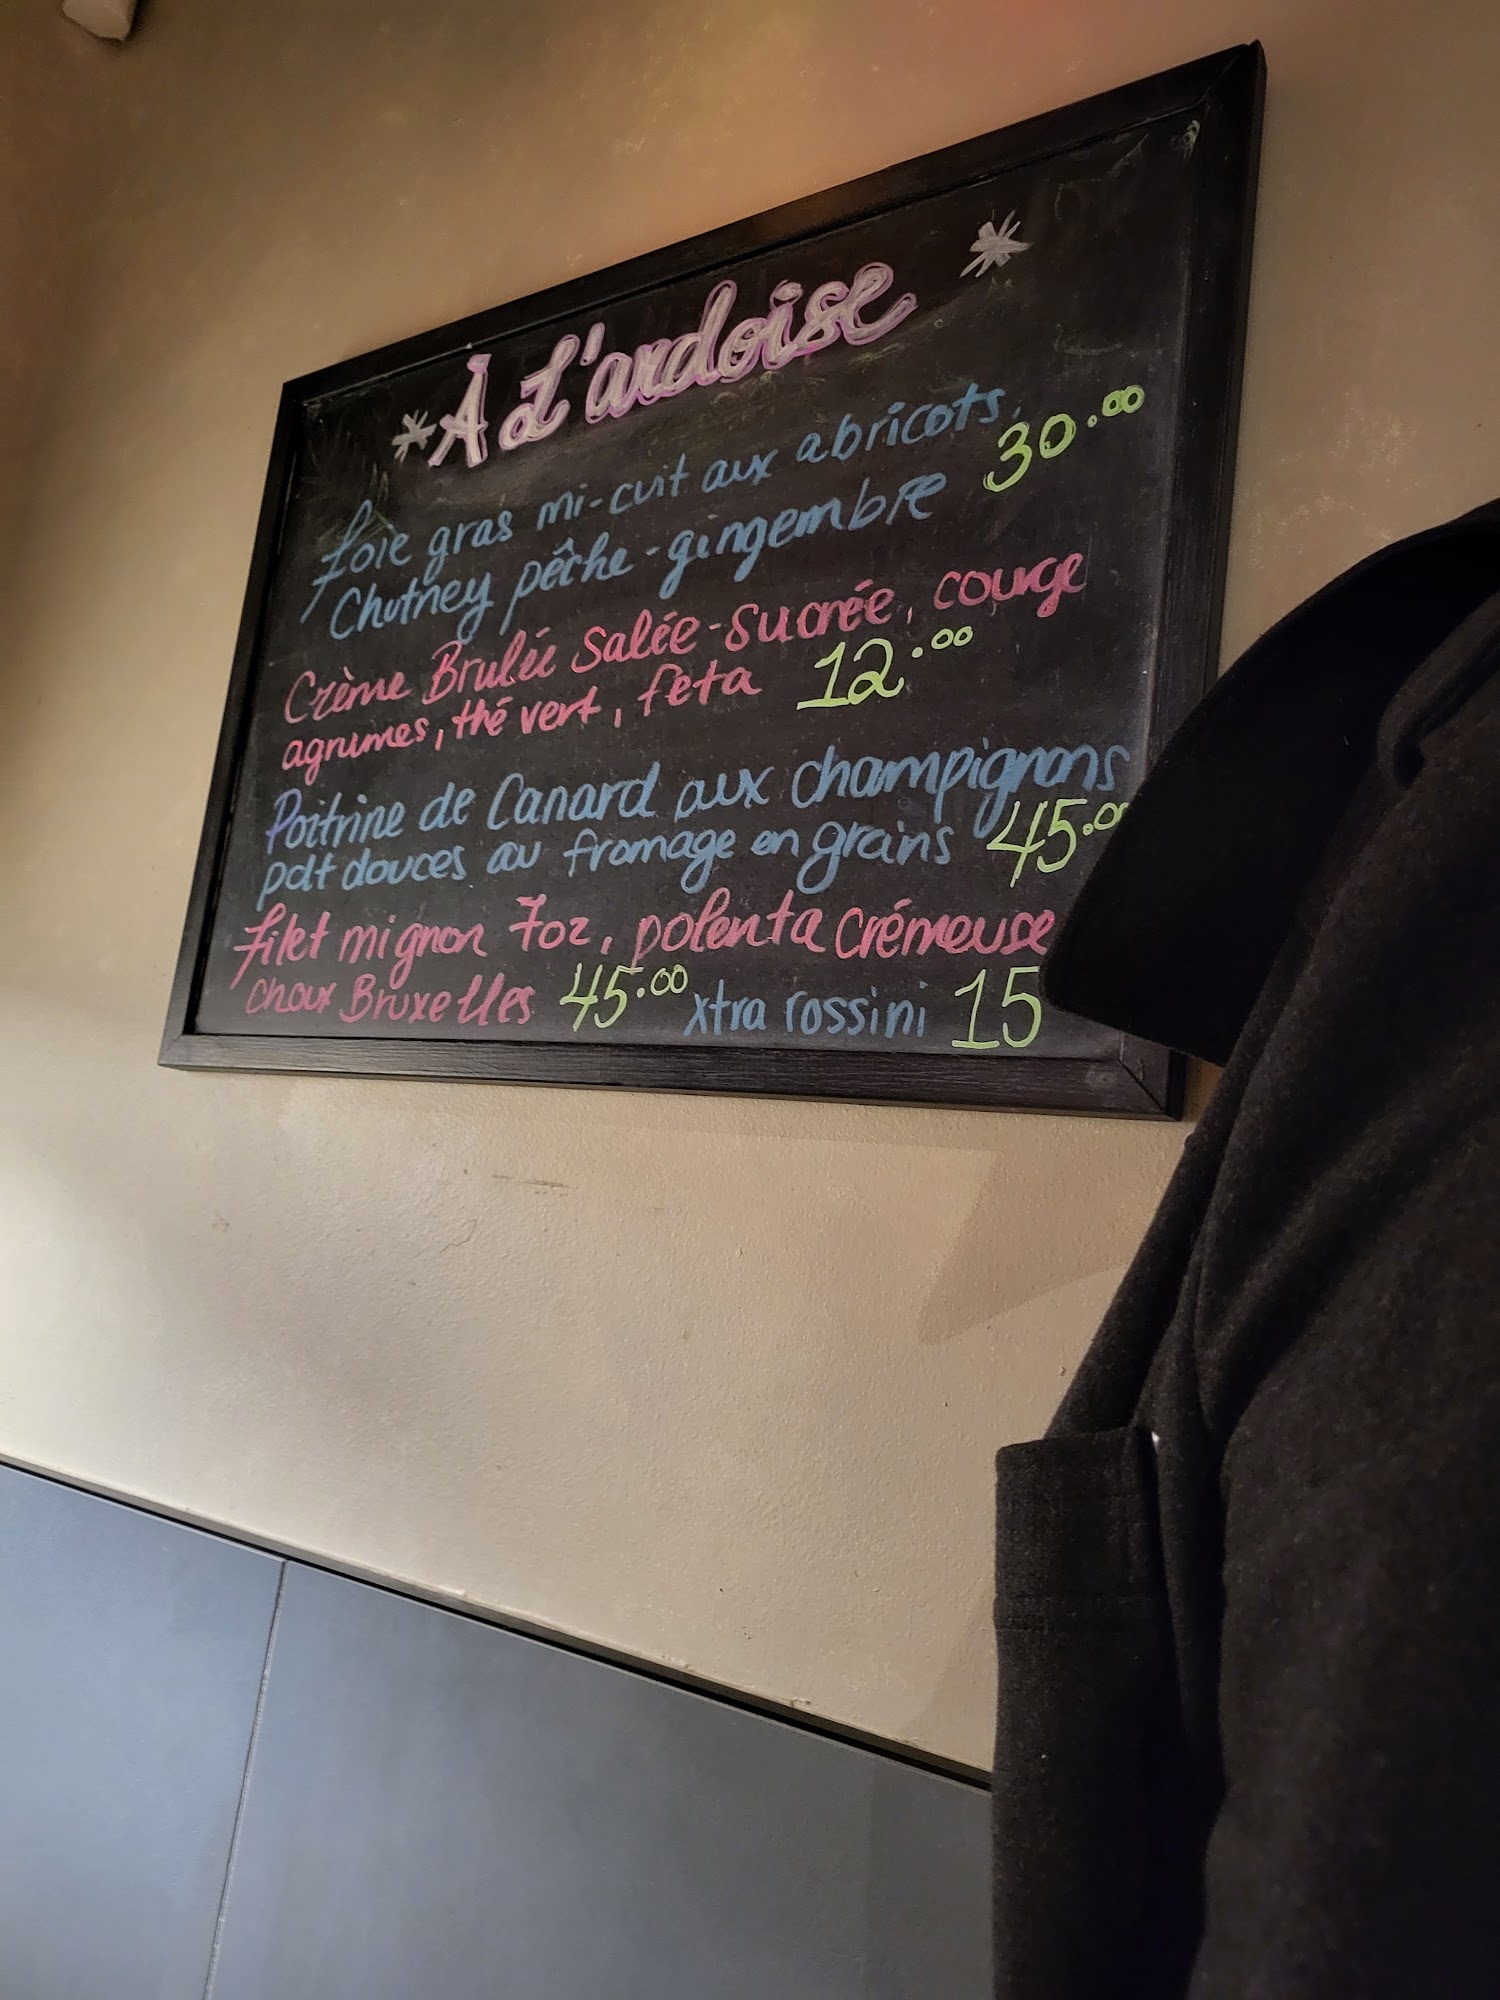 *À L'ardoise *
foie gras mi-cuit aux abricots,
Chutney pêche-gingembre 30.00
Crème Brulée Salée-Sucrée, courge
agrumes, thé vert, feta 12.00
Poitrine de Canard aux champignons
pdt douces au fromage en grains 45.00
filet mignon 7oz, polenta crémeuse
choux Bruxelles 45.00 xtra rossini 15